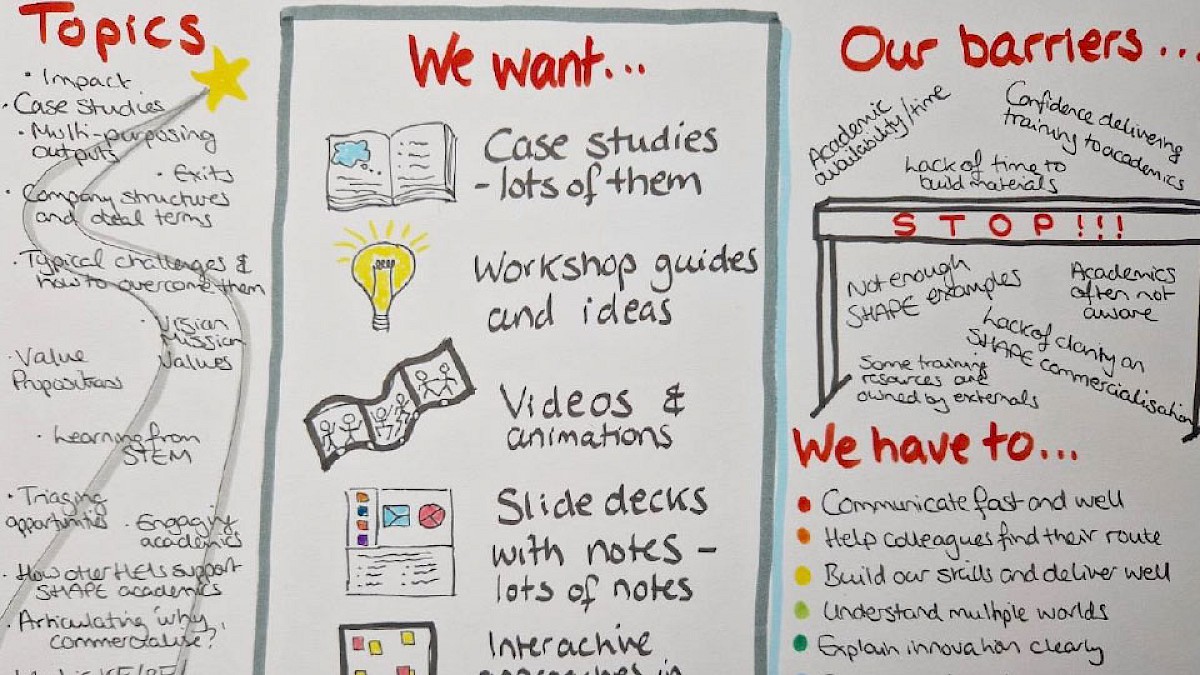 Topics
• Impact
• Case Studies
• Multi-purposing
outputs
• Exits
• Company structures
and deal terms
• Typical challenges &
how to overcome them
• Vision
Mission
Values
• Value
Propositions
• Learning from
STEM
• Triaging
opportunities
• Engaging
academics
• How other HEIs support
SHAPE academics
• Articulating 'why
commercialise?'
We want...
Case studies
- lots of them
Workshop guides
and ideas
Videos &
animations
Slide decks
with notes -
lots of notes
Interactive
approaches in
Our barriers...
Academic
availability/time
Confidence delivering
training to academics
Lack of time to
build materials
STOP!!!
Not enough
SHAPE examples
Academics
often not
aware
Lack of clarity on
SHAPE commercialisation
Some training
resources are
owned by externals
We have to...
• Communicate fast and well
• Help colleagues find their route
• Build our skills and deliver well
• Understand multiple worlds
• Explain innovation clearly